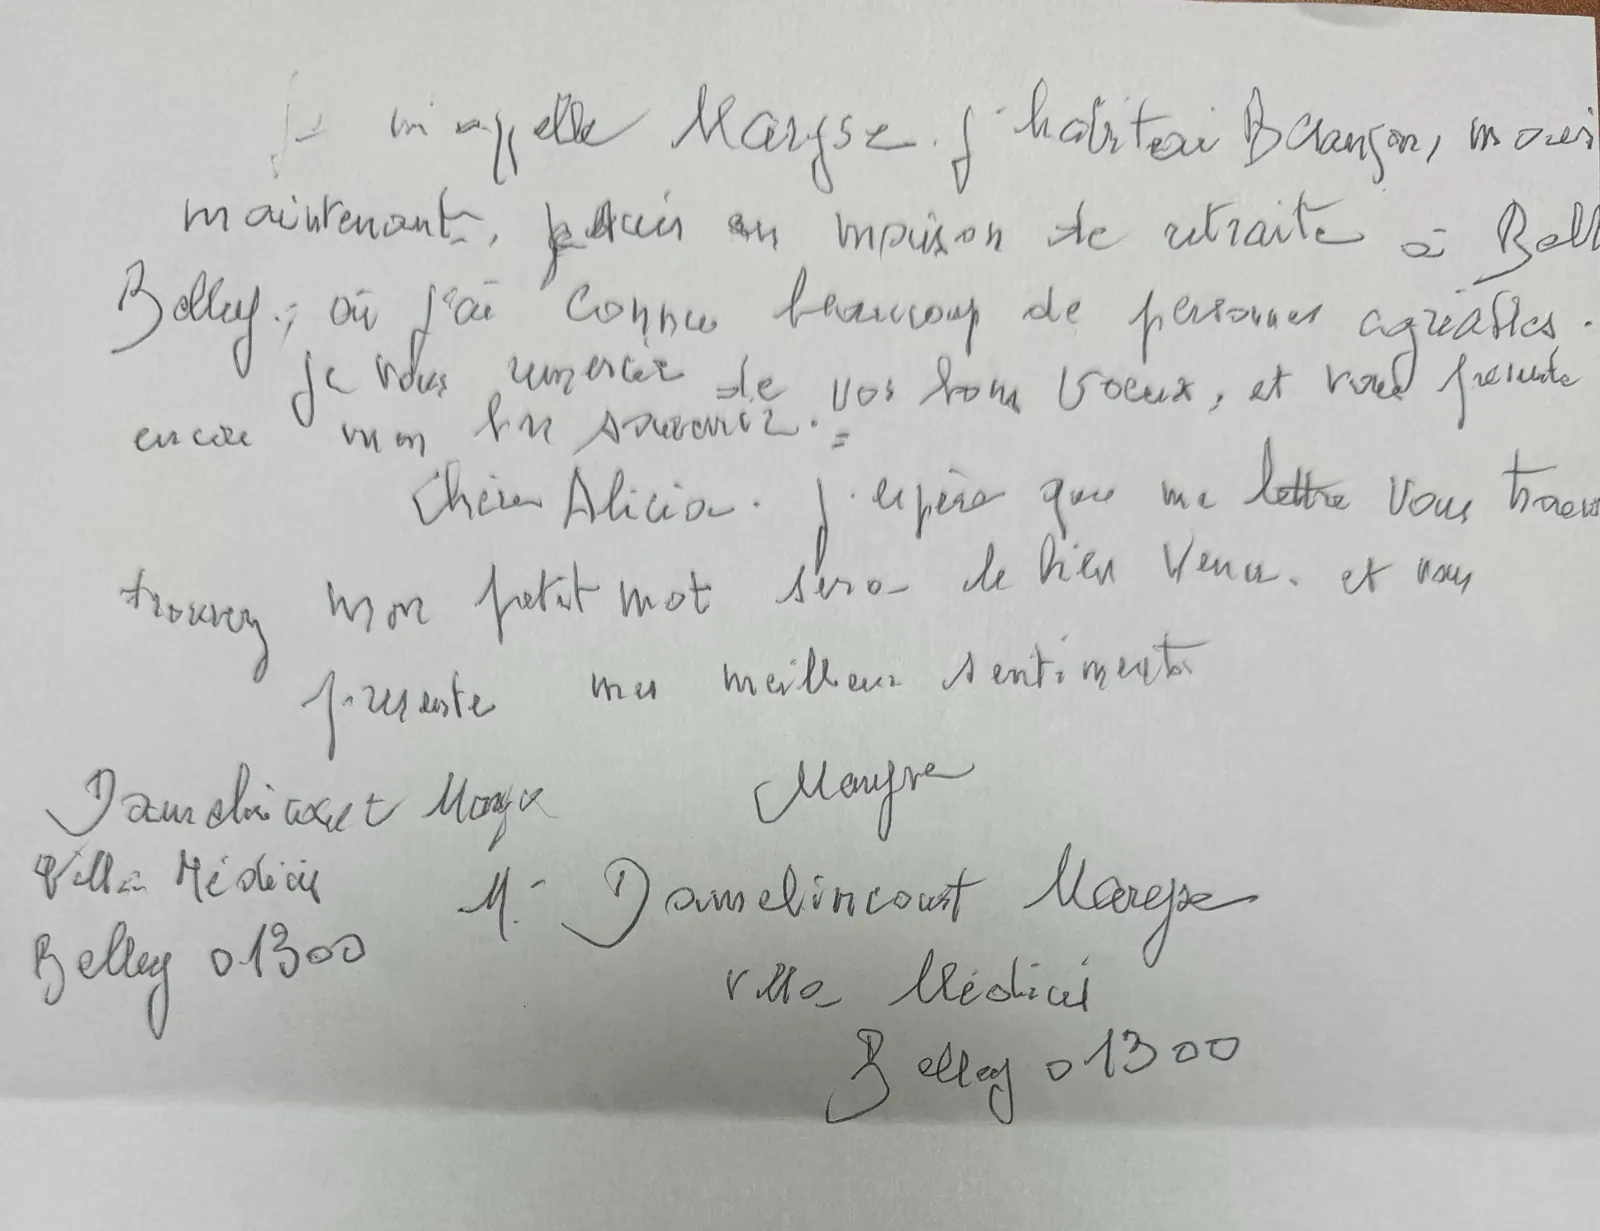 Je m'appelle Maryse. j'habitai Besançon, mais
maintenant, je suis en maison de retraite à Bell
Belley, où j'ai connu beaucoup de personnes agréables.
je vous remercie de vos bons voeux, et vous présente
encore mon souvenir.
Chère Alicia. j'espère que ma lettre vous trouv
trouvez mon petit mot sera le bien venu. et vous
présente mes meilleurs sentiments
Maryse
Maryse
Villa Médicis
Belley 01300
M. Damelincourt Maryse
villa Médicis
Belley 01300